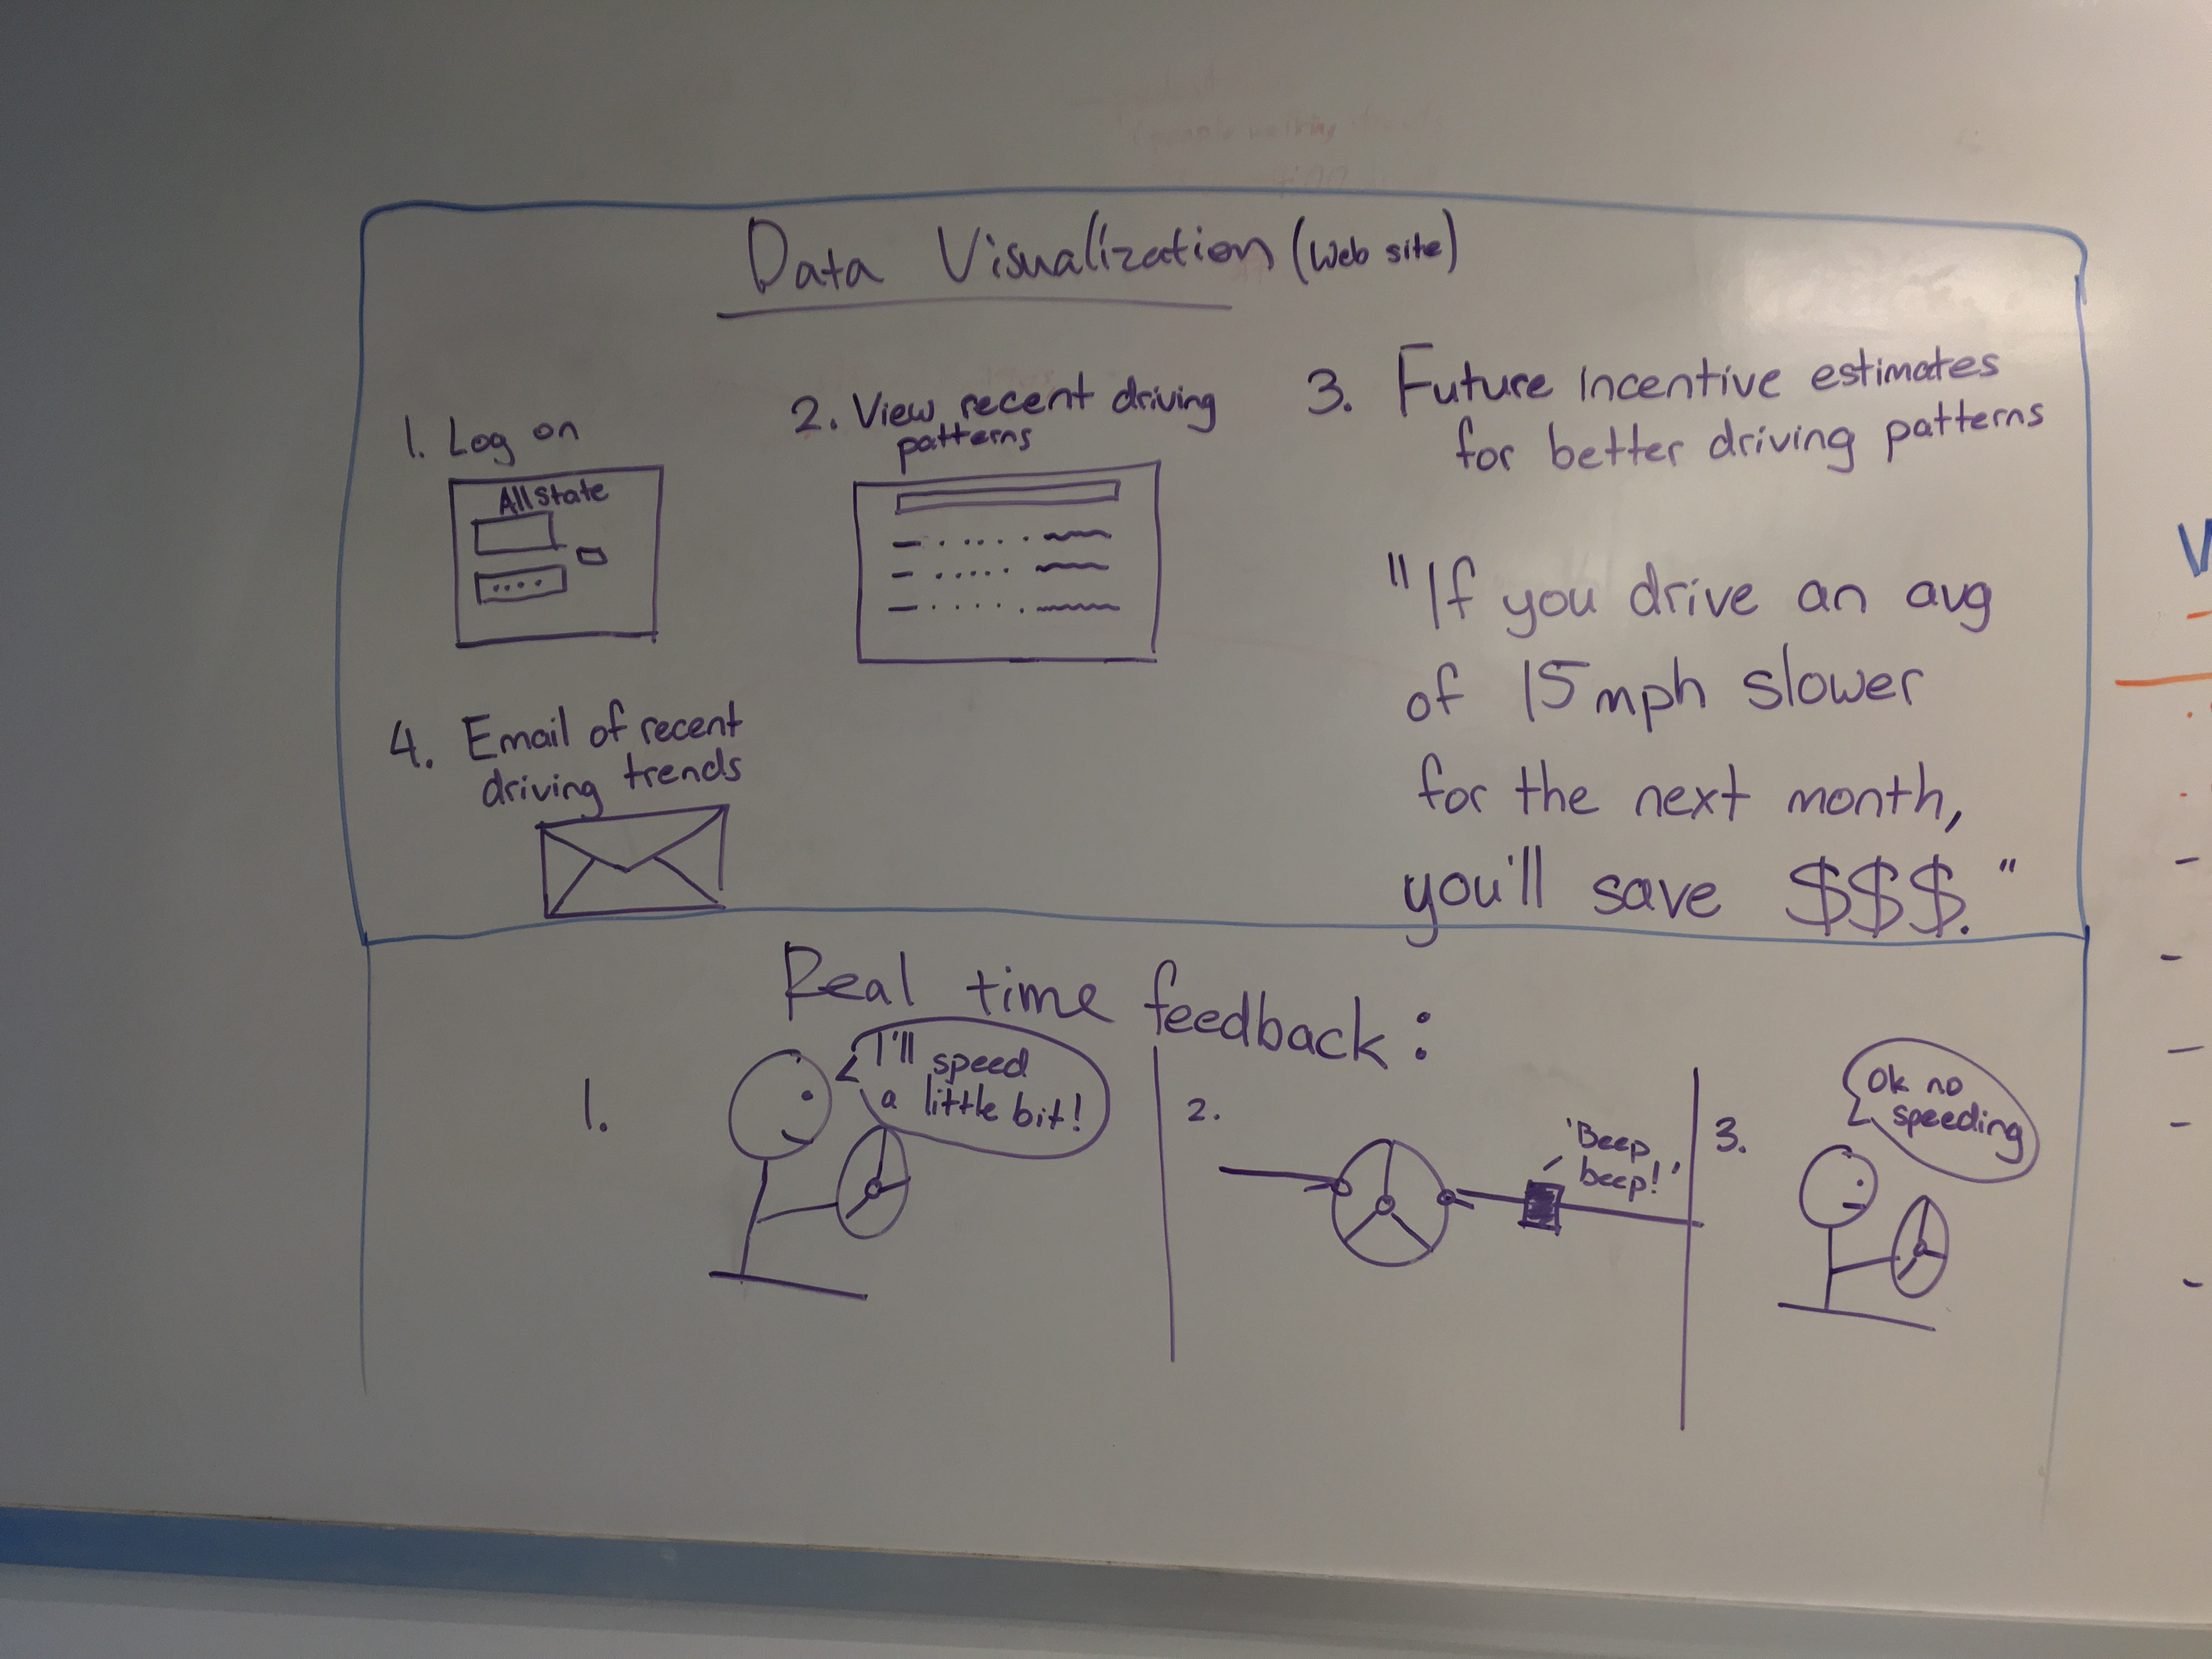 Data Visualization (Web site)
1. Log on
AllState
2. View recent driving
patterns
3. Future incentive estimates
for better driving patterns
"If you drive an avg
of 15 mph slower
for the next month,
you'll save $$$."
4. Email of recent
driving trends
Real time feedback:
1.
I'll speed
a little bit!
2.
'Beep
beep!'
3.
Ok no
speeding